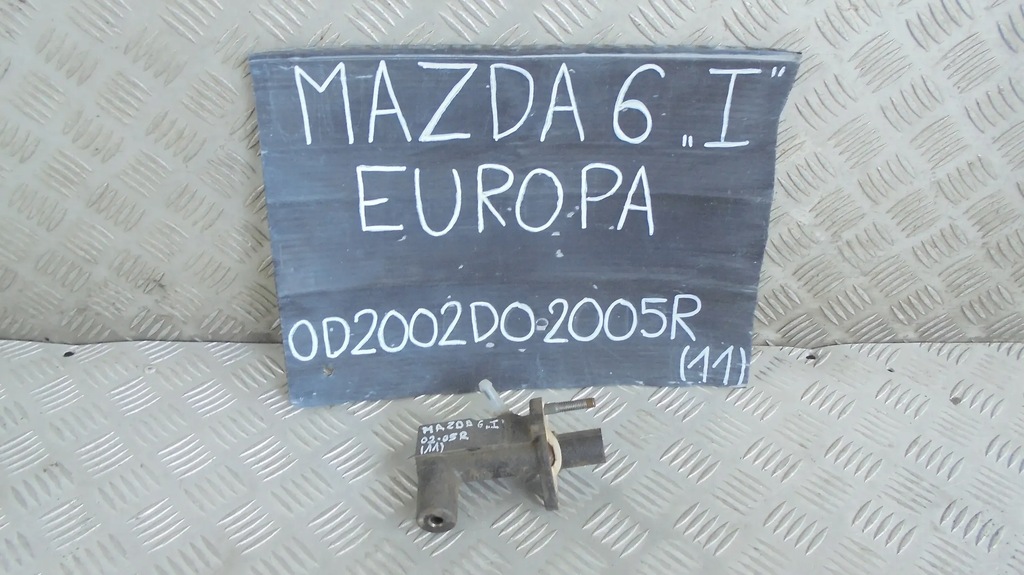 MAZDA 6 „I"
EUROPA
OD2002DO-2005R
(11)
MAZDA 6„I"
02-05R
(11)